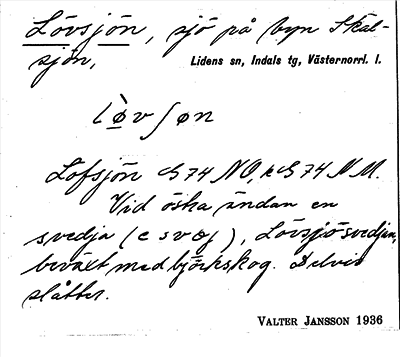 Lövsjön, sjö på byn Skal-
sjön, Lidens sn, Indals tg, Västernorrl. l.
lø̀vʃøn
Löfsjön G 74 NO, k G 74 N M.
Vid östra ändan en
svedja (e svæj), Lövsjösvedjan,
beväxt med björkskog. Delvis
slåtter.
VALTER JANSSON 1936